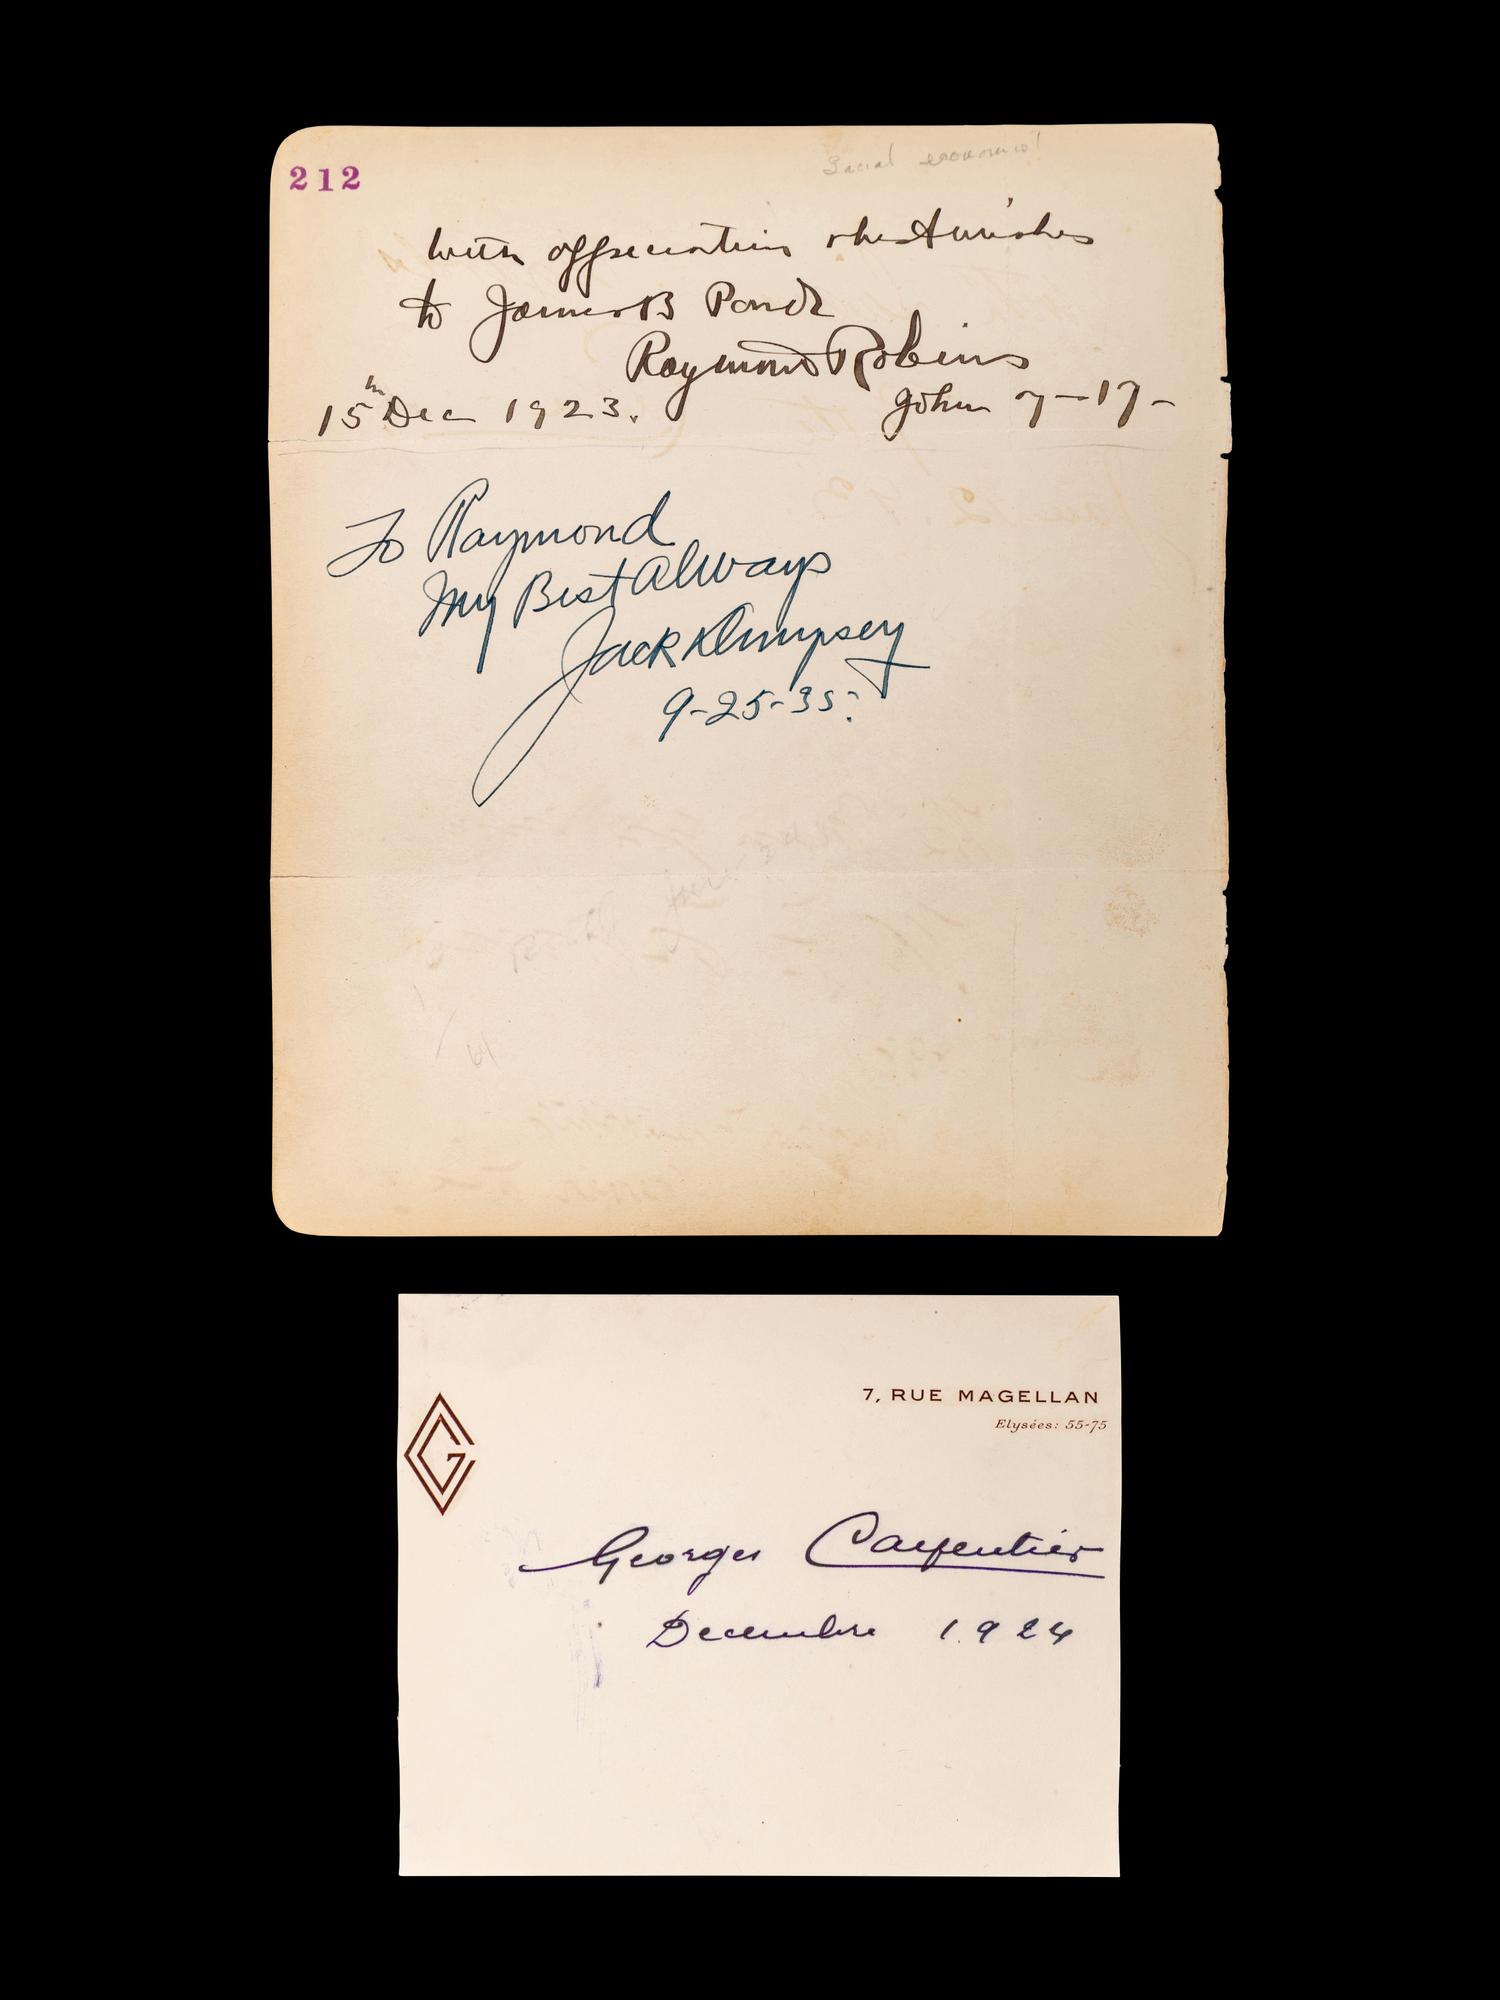 212
Social economist
With appreciation & best wishes
to James B Pond
Raymond Robins
15th Dec 1923.
John 7-17-
To Raymond
My Best Always
Jack Dempsey
9-25-35.
64
7, RUE MAGELLAN
Elysées: 55-75
GC
Georges Carpentier
Decembre 1924